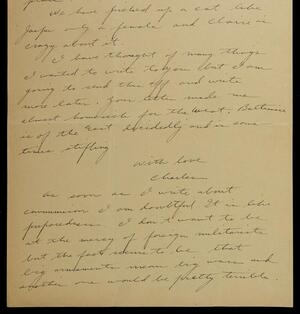 We have picked up a cat like
Jasper only a female and Claire is
crazy about it.
I have thought of many things
I wanted to write to you but I am
going to send this off and write
more later. Your letter made me
almost homesick for the West. Baltimore
is of the East decidedly and is some
times stifling
With love
Charles
As soon as I write about
communism I am doubtful. It is like
preparedness. I don't want to be
at the mercy of foreign militarists
but the fact seems to be that
big armaments mean big wars and
another one would be pretty terrible.